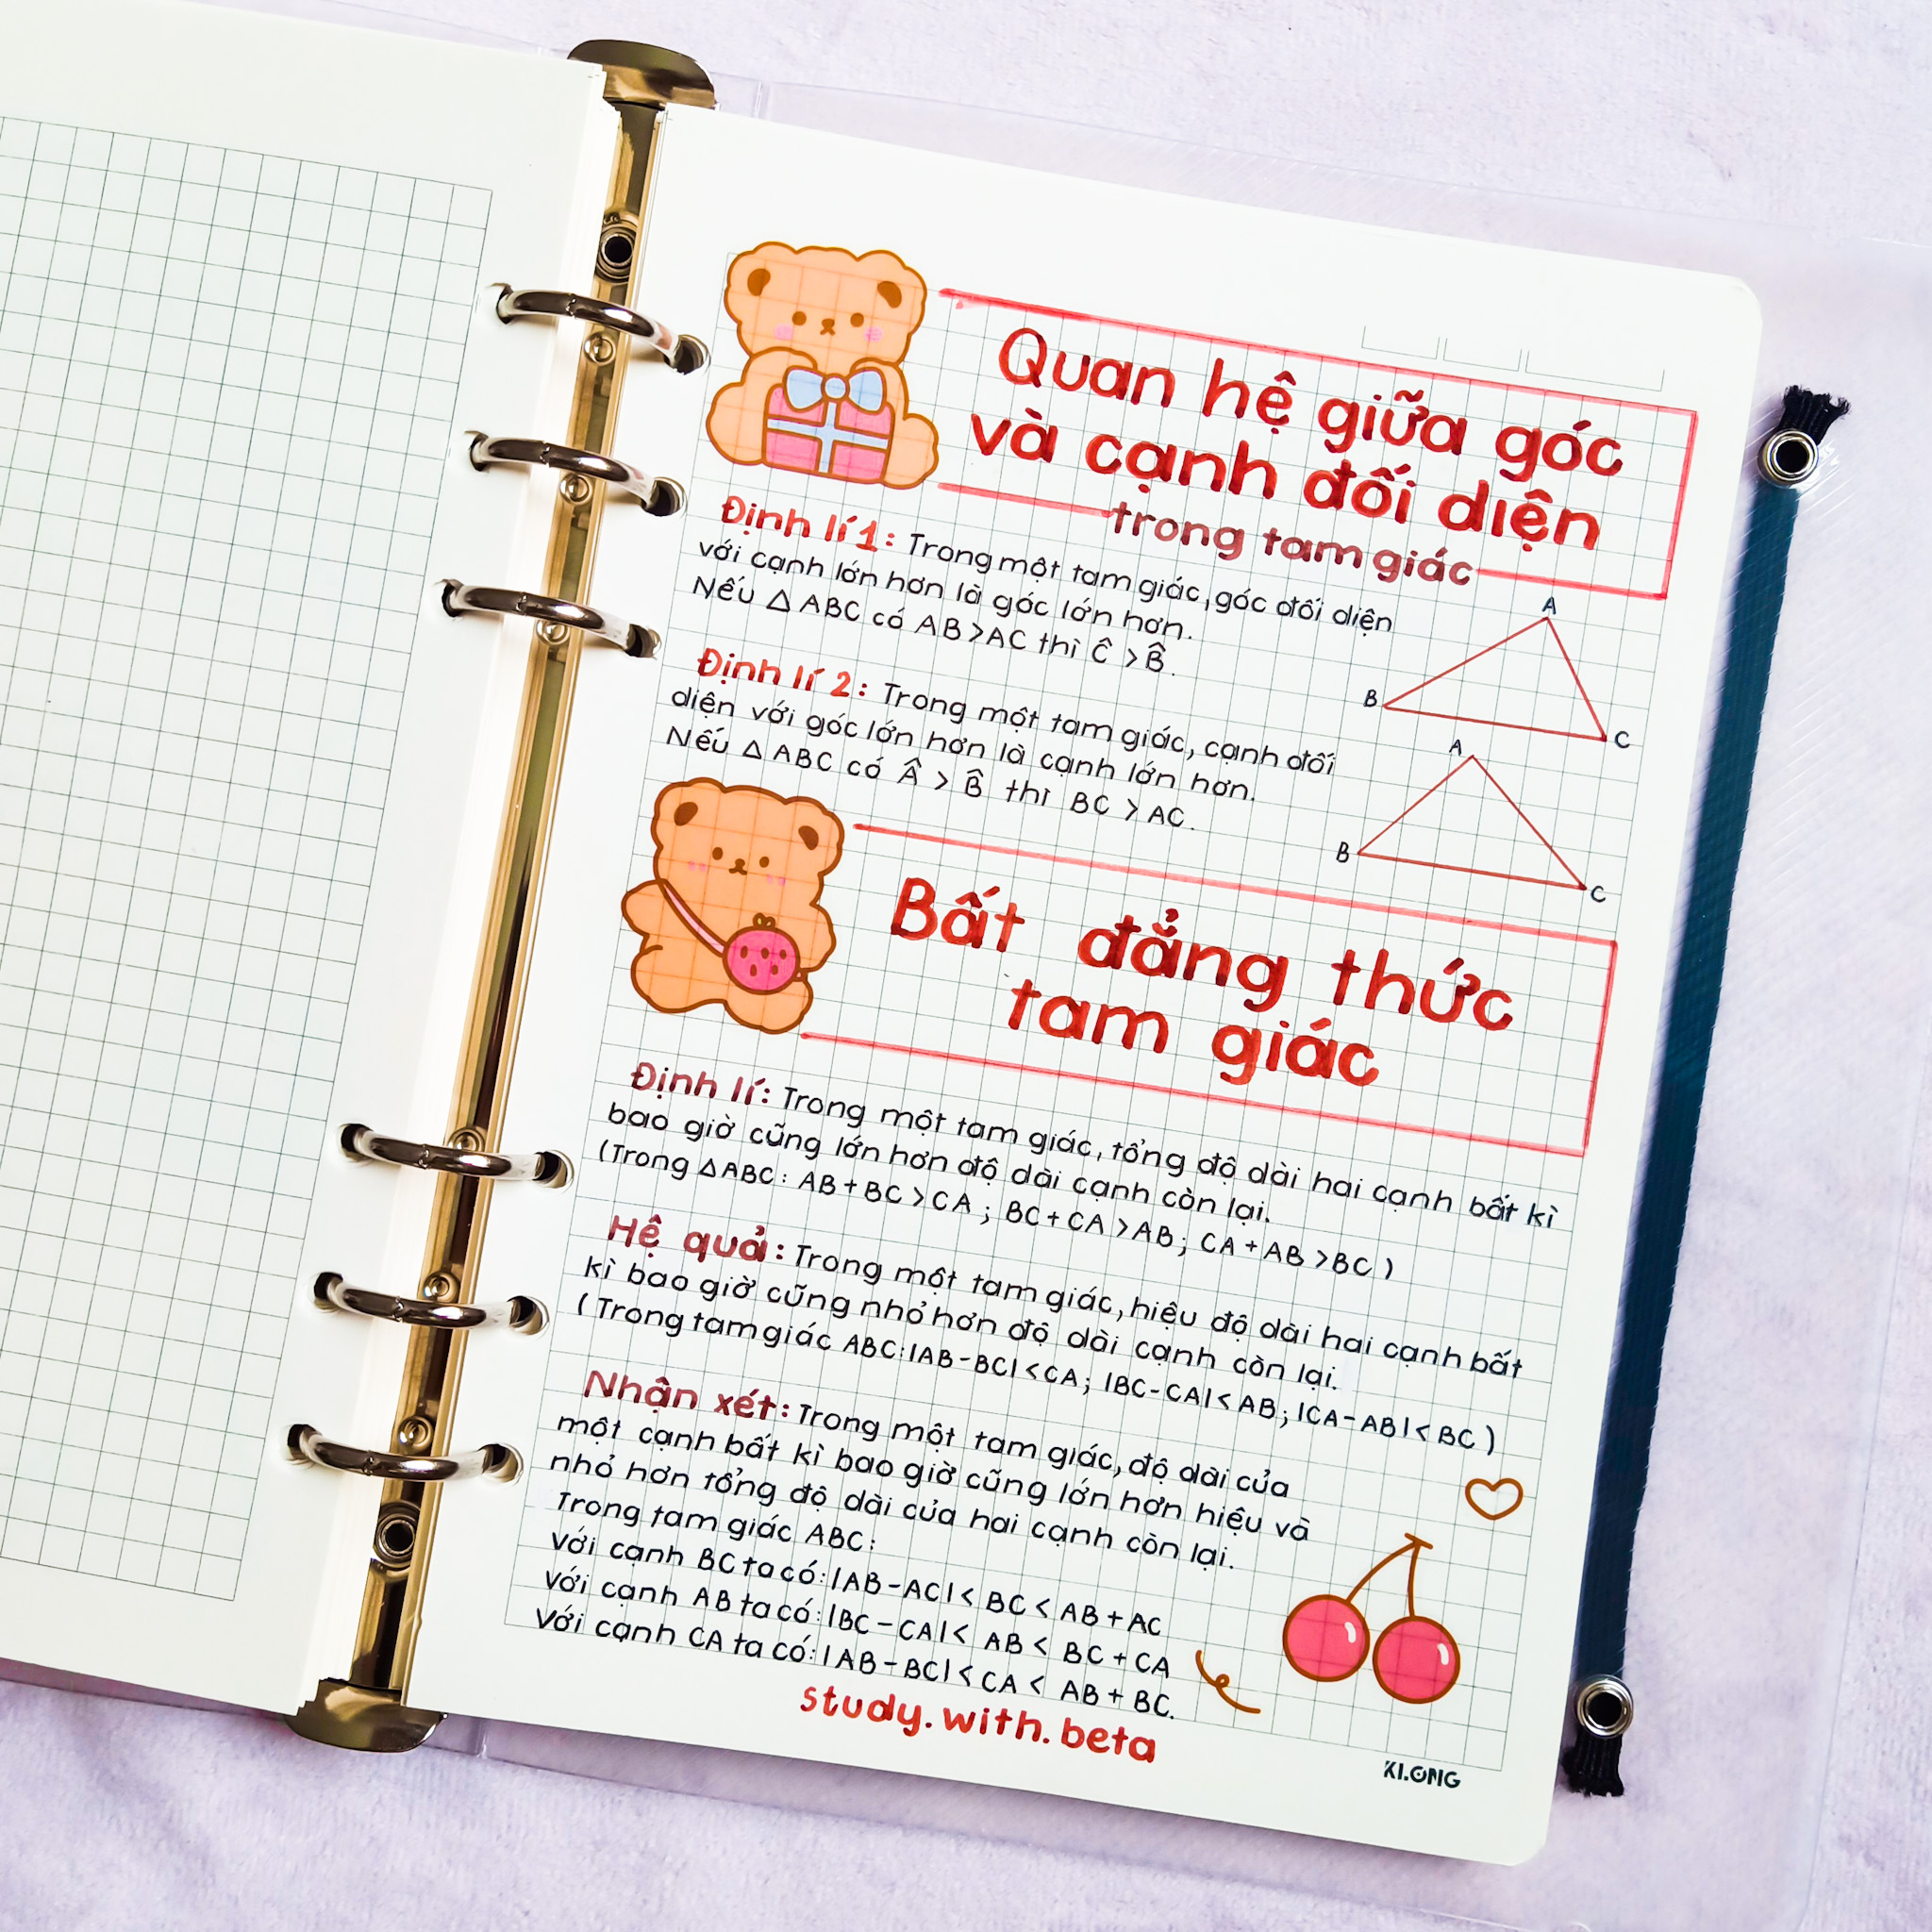 Quan hệ giữa góc
và cạnh đối diện
trong tam giác
Định lí 1: Trong một tam giác, góc đối diện
với cạnh lớn hơn là góc lớn hơn.
Nếu △ ABC có AB > AC thì Ĉ > B̂.
A
B
C
Định lí 2: Trong một tam giác, cạnh đối
diện với góc lớn hơn là cạnh lớn hơn.
Nếu △ ABC có Â > B̂ thì BC > AC.
A
B
C
Bất đẳng thức
tam giác
Định lí: Trong một tam giác, tổng độ dài hai cạnh bất kì
bao giờ cũng lớn hơn độ dài cạnh còn lại.
(Trong △ABC: AB + BC > CA ; BC + CA > AB; CA + AB > BC )
Hệ quả: Trong một tam giác, hiệu độ dài hai cạnh bất
kì bao giờ cũng nhỏ hơn độ dài cạnh còn lại.
( Trong tam giác ABC: |AB - BC| < CA; |BC - CA| < AB; |CA - AB| < BC )
Nhận xét: Trong một tam giác, độ dài của
một cạnh bất kì bao giờ cũng lớn hơn hiệu và
nhỏ hơn tổng độ dài của hai cạnh còn lại.
Trong tam giác ABC:
với cạnh BC ta có: |AB - AC| < BC < AB + AC
với cạnh AB ta có: |BC - CA| < AB < BC + CA
Với cạnh CA ta có: | AB - BC| < CA < AB + BC.
study.with.beta
KLONG